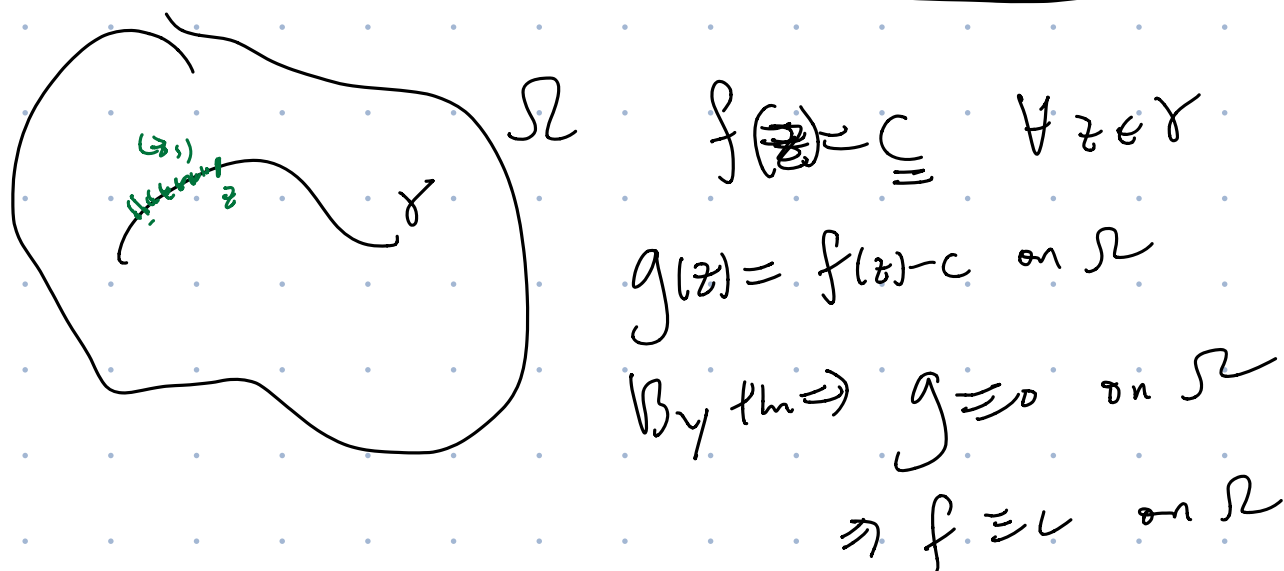 Ω
f(z) = c ∀ z ∈ γ
z
γ
g(z) = f(z) - c on Ω
By thm ⇒ g ≡ 0 on Ω
⇒ f ≡ c on Ω